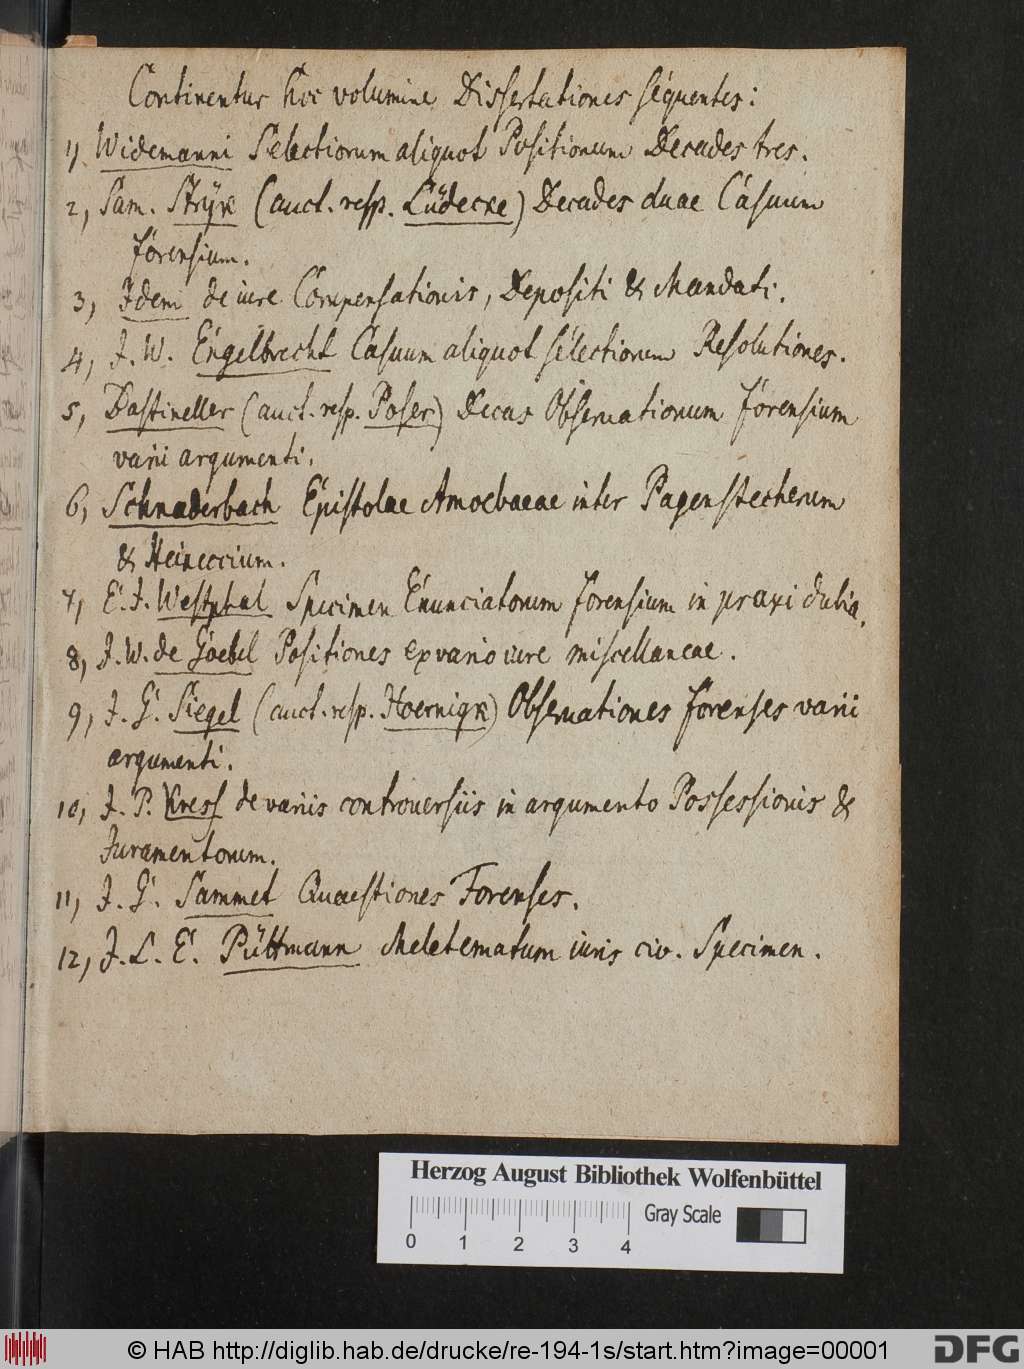 Continentur hoc volumine Dissertationes sequentes:
1, Widemanni Selectiorum aliquot Positionum Decades tres.
2, Sam. Stryk (auct. resp. Lüdecke) Decades duae Casuum
forensium.
3, Idem de iure Compensationis, Depositi & Mandati.
4, J. W. Engelbrecht Casuum aliquot selectiorum Resolutiones.
5, Dastineller (auct. resp. Poser) Decas Observationum forensium
varii argumenti.
6, Schnaderbach Epistolae Amoebaeae inter Pagenstecherum
& Heineccium.
7, E. J. Westphal Specimen Enunciatorum forensium in praxi dubia.
8, J. W. de Goebel Positiones ex vario iure miscellaneae.
9, J. G. Siegel (auct. resp. Hoernigk) Observationes forenses varii
argumenti.
10, J. P. Kress de variis controversiis in argumento Possessionis &
Juramentorum.
11, J. G. Sammet Quaestiones Forenses.
12, J. L. E. Püttmann Meletematum iuris civ. Specimen.
Herzog August Bibliothek Wolfenbüttel
Gray Scale
0 1 2 3 4
© HAB http://diglib.hab.de/drucke/re-194-1s/start.htm?image=00001
DFG